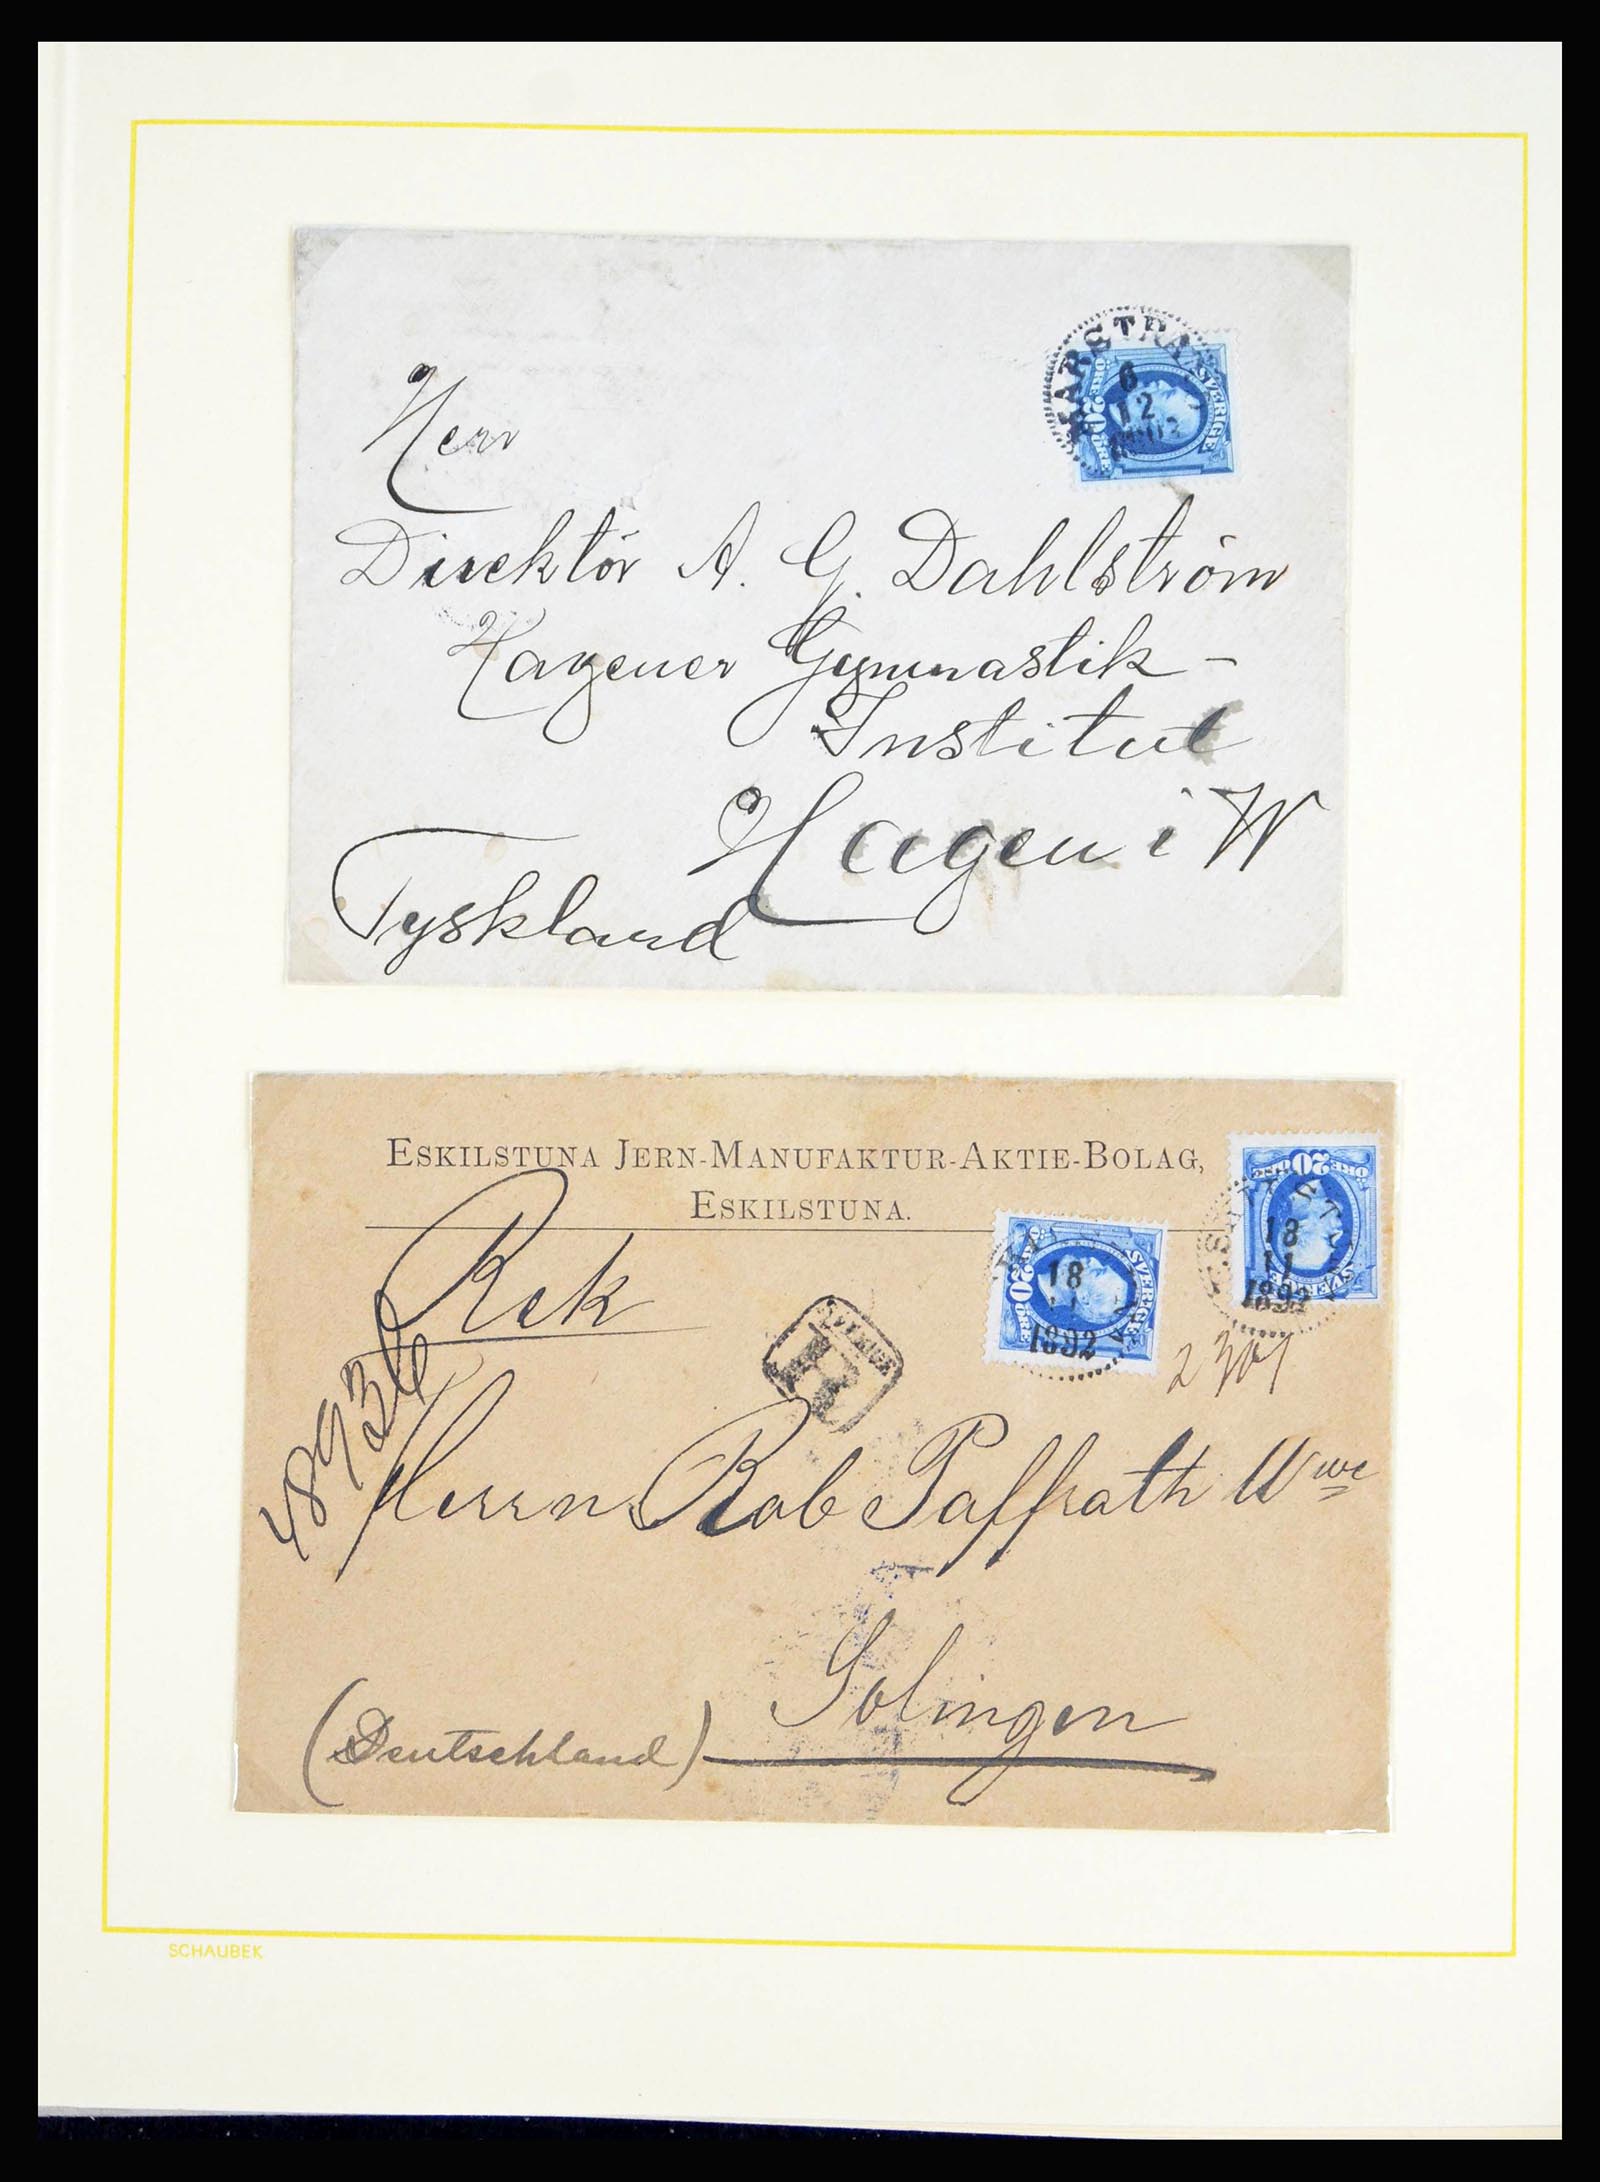 MARSTRAND
6
12
SVERIGE
20
ÖRE
Herr
Direktör A. G. Dahlström
Hagener Gymnastik-
Institut
Hagen i W
Tyskland
ESKILSTUNA JERN-MANUFAKTUR-AKTIE-BOLAG,
ESKILSTUNA.
Rek
48936
SVERIGE
R
20
ÖRE
SVERIGE
18
11
1892
20
ÖRE
SVERIGE
18
11
1892
Herrn Rob Paffrath Wwe
Solingen
(Deutschland)
SCHAUBEK